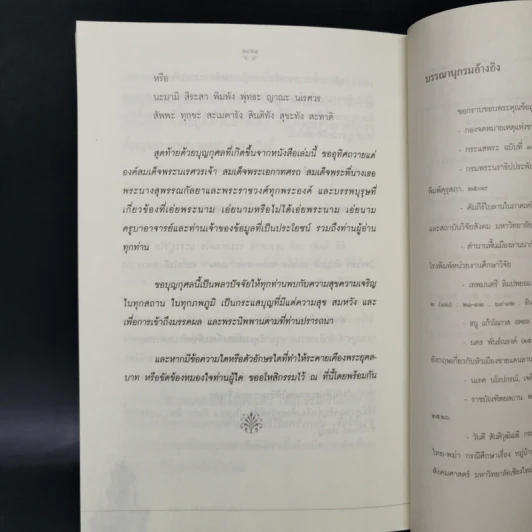 หรือ
นะมามิ สิระสา พิมพัง พุทธะ ญาณะ นเรศวร
สัพพะ ทุกขะ สะเมตารัง สินติทัง สุขะทัง สะทาติ
สุดท้ายด้วยบุญกุศลที่เกิดขึ้นจากหนังสือเล่มนี้ ขออุทิศถวายแด่
องค์สมเด็จพระนเรศวรเจ้า สมเด็จพระเอกาทศรถ สมเด็จพระพี่นางเธอ
พระนางสุพรรณกัลยาและพระราชวงศ์ทุกพระองค์ และบรรพบุรุษที่
เกี่ยวข้องที่เอ่ยพระนาม เอ่ยนามหรือไม่ได้เอ่ยพระนาม เอ่ยนาม
ครูบาอาจารย์และท่านเจ้าของข้อมูลที่เป็นประโยชน์ รวมถึงท่านผู้อ่าน
ทุกท่าน
ขอบุญกุศลนี้เป็นพลวปัจจัยให้ทุกท่านพบกับความสุขความเจริญ
ในทุกสถาน ในทุกภพภูมิ เป็นกระแสบุญที่มีแต่ความสุข สมหวัง และ
เพื่อการเข้าถึงมรรคผล และพระนิพพานตามที่ท่านปรารถนา
และหากมีข้อความใดหรือตัวอักษรใดที่ทำให้ระคายเคืองพระยุคล-
บาท หรือขัดข้องหมองใจท่านผู้ใด ขออโหสิกรรมไว้ ณ ที่นี้โดยพร้อมกัน
บรรณานุกรมอ้างอิง
ขอกราบขอบพระคุณข้อมูล
- กองจดหมายเหตุแห่งชา
- กระแสพระ ฉบับที่
- กรมพระนราธิปประพัน
พิมพ์คุรุสภา.
- คัมภีร์ใบลานในภาคเหนือ
และสถาบันวิจัยสังคม มหาวิทยาลัย
- ตำนานพื้นเมืองลานนา
โรงพิมพ์หน่วยงานศึกษาวิจัย
- เทพมนตรี ลิมปพยอม
- หนู แก้วโอภาส
- นคร พันธุ์ณรงค์
อังกฤษเกี่ยวกับหัวเมืองชายแดนลาน
- นเรศ นโรปกรณ์,
- ราชบัณฑิตยสถาน
๒๕๒๖.
- วันดี สันติวุฒิเมธี
ไทย-พม่า กรณีศึกษาเรื่อง หมู่บ้าน
สังคมศาสตร์ มหาวิทยาลัยเชียงใหม่